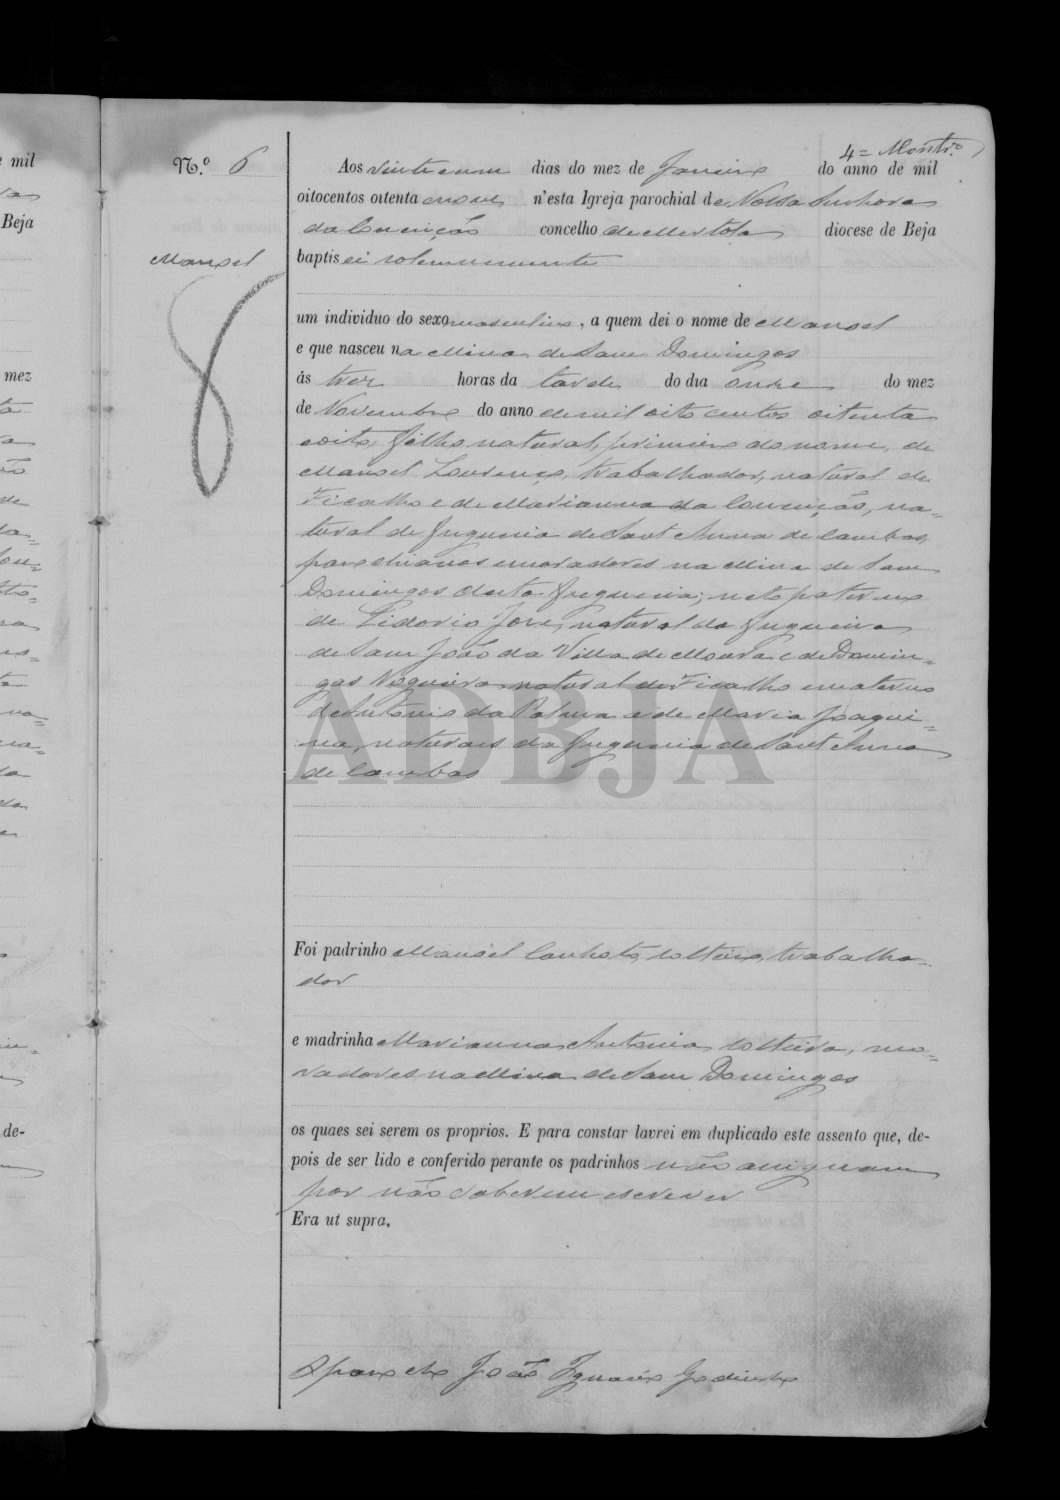 e mil
Beja
mez
de-
4= Montro
N.º 6
Aos vinte e um dias do mez de Janeiro do anno de mil
oitocentos oitenta e nove n'esta Igreja parochial de Nossa Senhora
da Conceição concelho de Mertola diocese de Beja
Manoel
baptisei solemnemente
um individuo do sexo masculino, a quem dei o nome de Manoel
e que nasceu na Mina de Sam Domingos
ás trez horas da tarde do dia onze do mez
de Novembro do anno de mil oito centos oitenta
e oito, filho natural, primeiro do nome, de
Manoel Lourenço, trabalhador, natural de
Ficalho e de Marianna da Conceição, na=
tural de freguesia de Sant Anna de Cambas,
parochianos moradores na Mina de Sam
Domingos desta freguesia; neto paterno
de Lidorio José, natural da freguesia
de Sam João da Villa de Moura e de Domin=
gas Nogueira natural de Ficalho e materno
de Antonio da Palma e de Maria Joaqui=
na, naturais da freguesia de Sant Anna
de Cambas
ADBJA
Foi padrinho Manoel Canhoto, solteiro, trabalha=
dor
e madrinha Marianna Antonia, solteira, mo=
radores na Mina de Sam Domingos
os quaes sei serem os proprios. E para constar lavrei em duplicado este assento que, de-
pois de ser lido e conferido perante os padrinhos não assignam
por não saberem escrever
Era ut supra.
O parocho João Ignacio Godinho